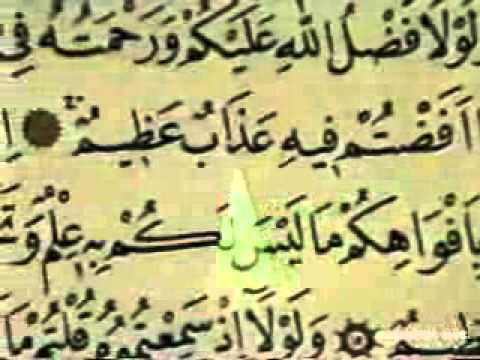 وَلَوْلَا فَضْلُ اللَّهِ عَلَيْكُمْ وَرَحْمَتُهُ فِي
اَفَضْتُمْ فِيهِ عَذَابٌ عَظِيمٌ
بِاَفْوَاهِكُمْ مَا لَيْسَ لَكُمْ بِهِ عِلْمٌ
وَلَوْلَا اِذْ سَمِعْتُمُوهُ قُلْتُمْ مَا